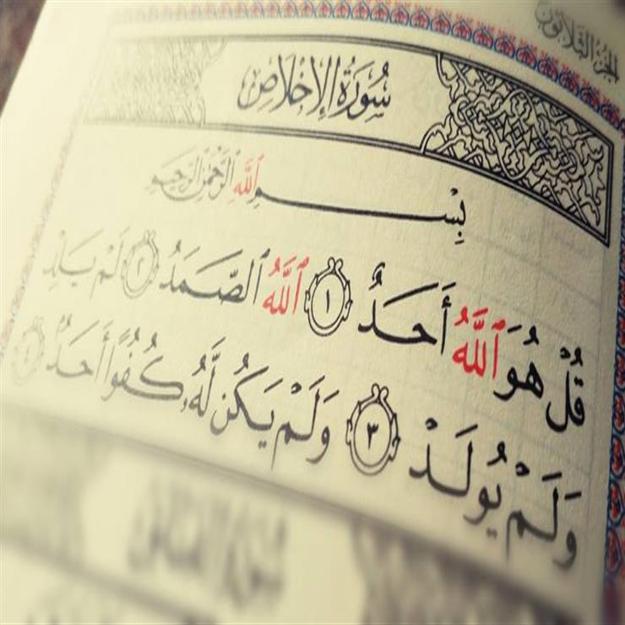 الجزء الثلاثون
سُورَةُ الإِخْلَاصِ
بِسْمِ ٱللَّهِ ٱلرَّحْمَٰنِ ٱلرَّحِيمِ
قُلْ هُوَ ٱللَّهُ أَحَدٌ ١ ٱللَّهُ ٱلصَّمَدُ ٢ لَمْ يَلِدْ
وَلَمْ يُولَدْ ٣ وَلَمْ يَكُن لَّهُۥ كُفُوًا أَحَدٌۢ ٤